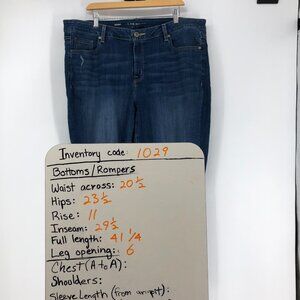 Inventory code: 1029
Bottoms/Rompers
Waist across: 20 1/2
Hips: 23 1/2
Rise: 11
Inseam: 29 1/2
Full length: 41 1/4
Leg opening: 6
Chest (A to A):
Shoulders:
Sleeve Length (from armpit):